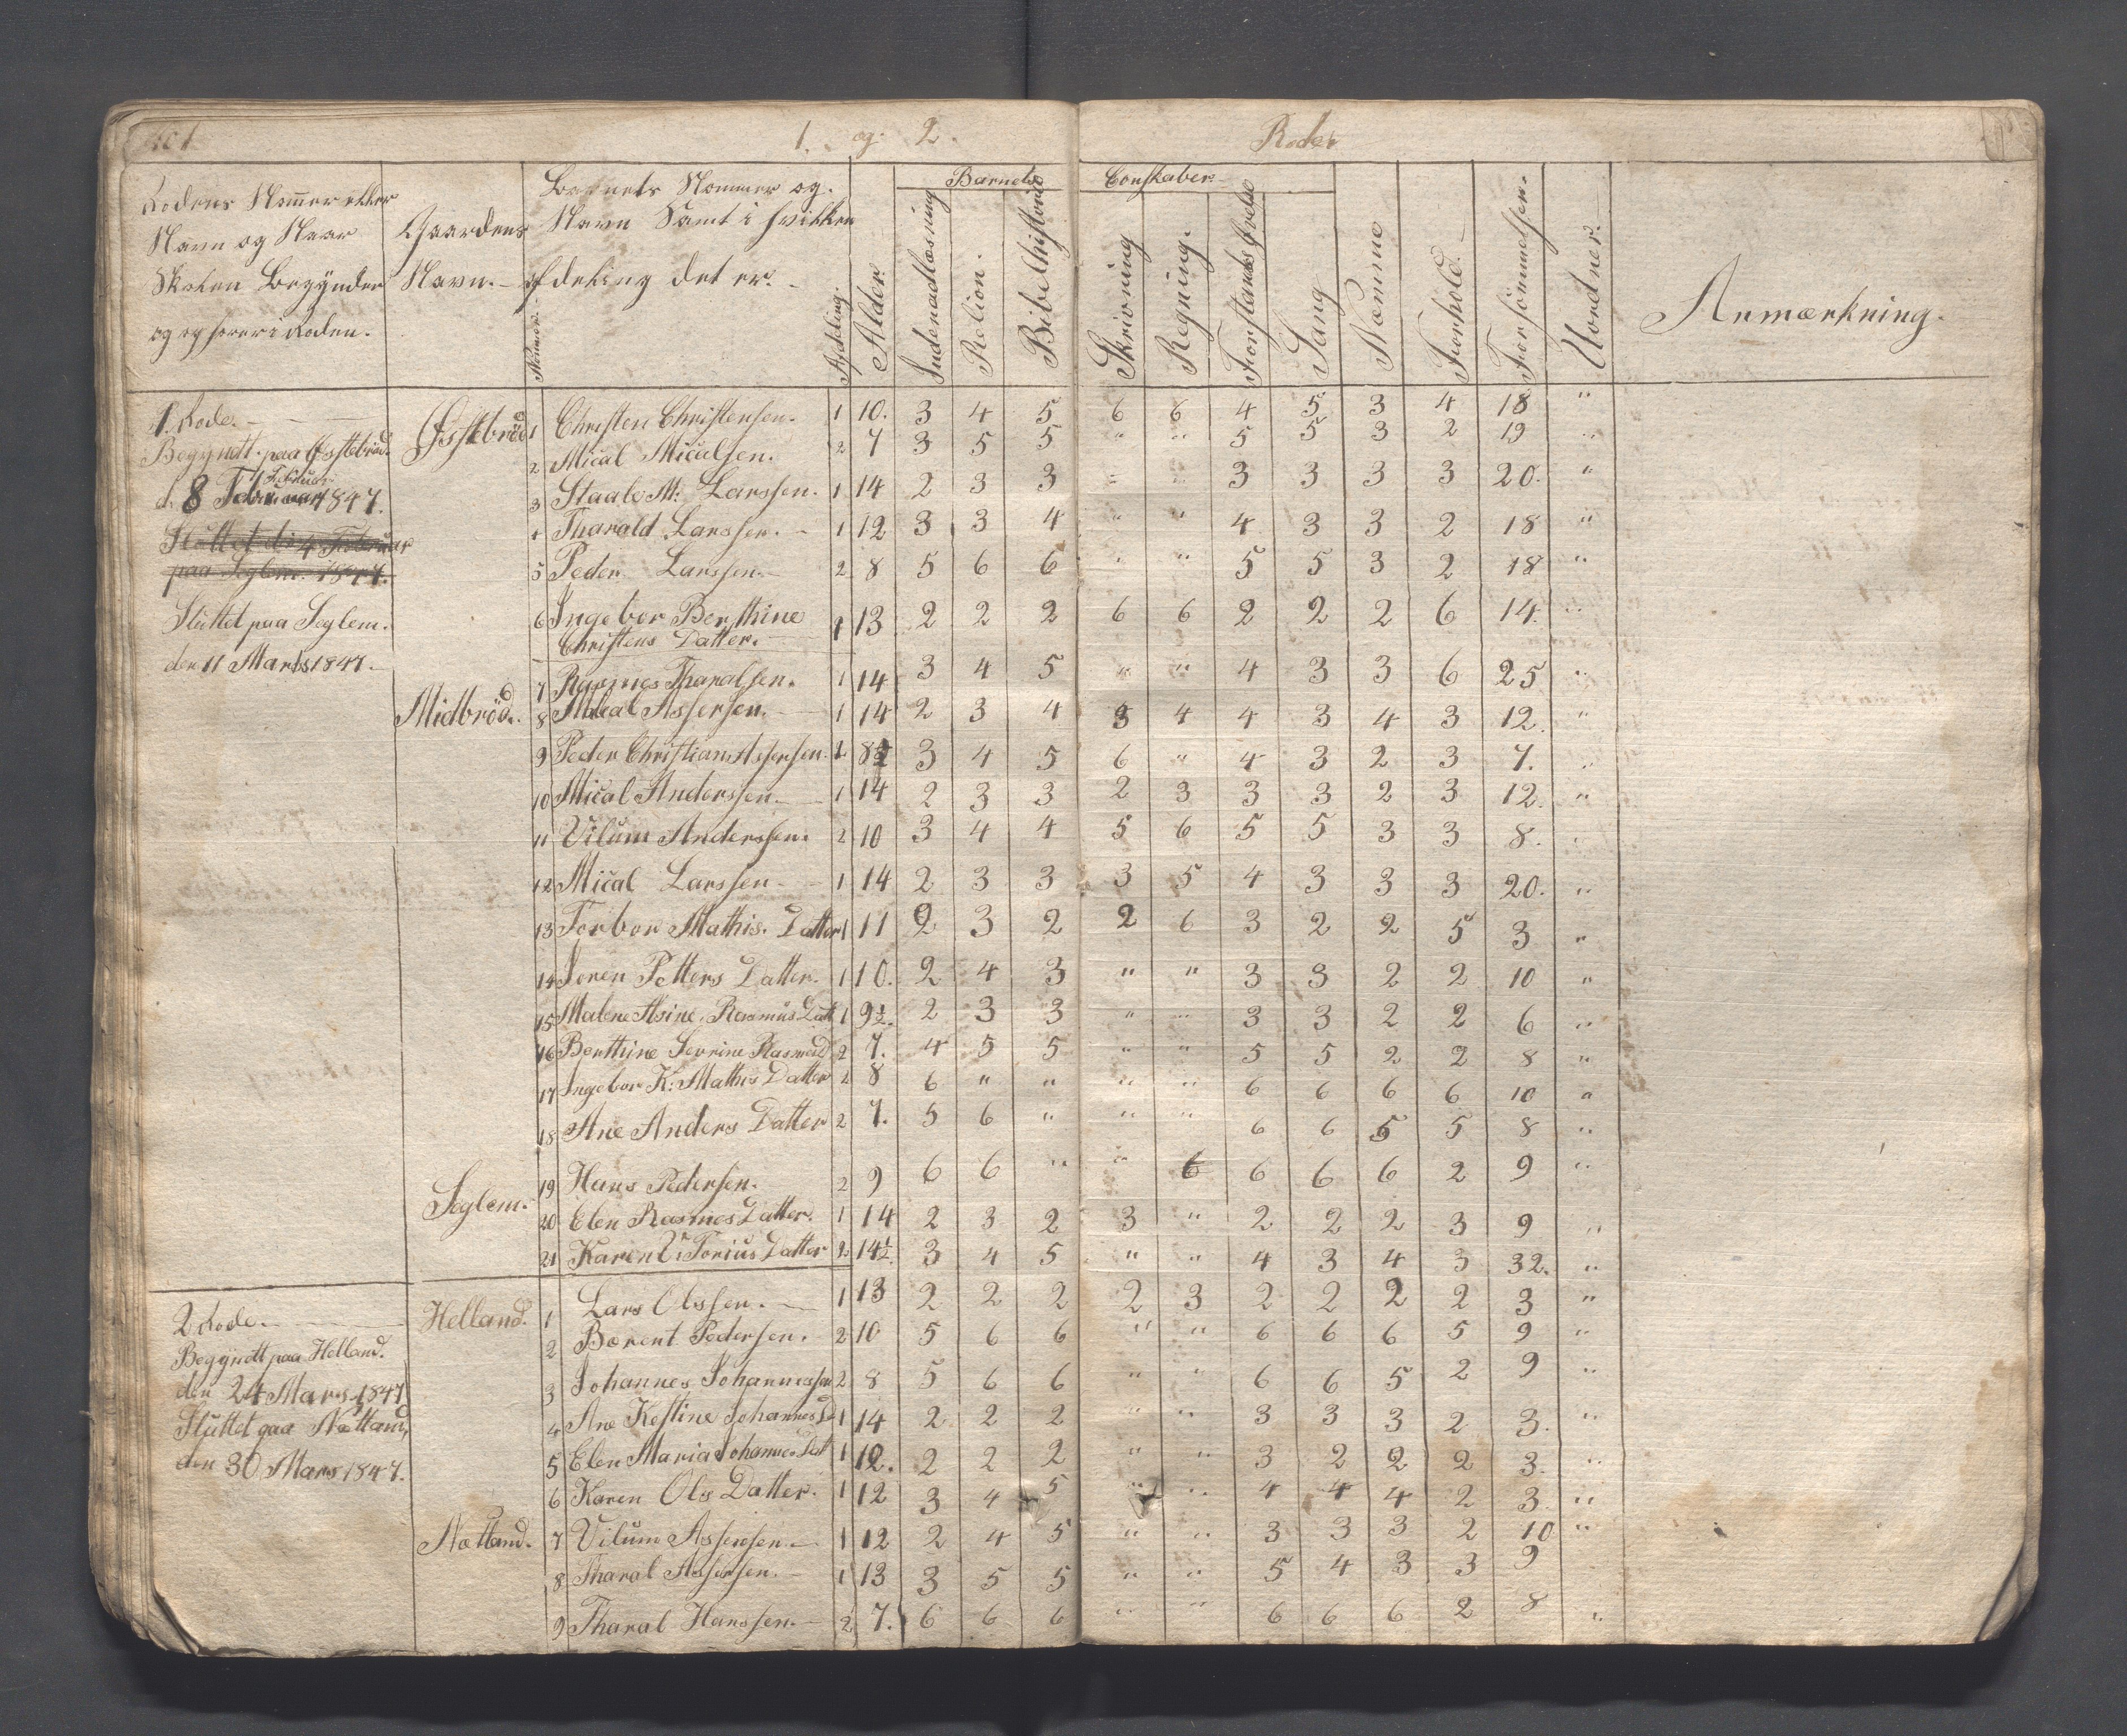 1. og 2. Rode
Rodens Nommer eller
Navn og Naar
Skolen Begynder
og ophører i Roden.
Gaardens
Navn.
Barnets Nommer og
Navn Samt i hvilken
Afdeling det er.
Nommer.
Afdeling.
Alder.
Barnets Conskaber
Indenadlæsning
Relion.
Bibelhistorie
Skrivning
Regning.
Forstands Øvelse
Sang
Næmme
Forhold.
Forsømmelsen.
Anmærkning.
1. Rode.
Begyndt paa Østebröd
d. 8 Februar 1847.
Sluttet d: 4 Februar
paa Seglem. 1847.
Sluttet paa Seglem.
den 11 Marts 1847.
Østebröd 1 Christen Christensen. 1 10. 3 4 5 6 6 4 5 3 4 18 "
2 Mical Micalsen. 2 7 3 5 5 " " 5 5 3 2 19 "
3 Staale M: Larssen. 1 14 2 3 3 " " 3 3 3 3 20. "
4 Tharald Larssen. 1 12 3 3 4 " " 4 3 3 2 18 "
5 Peder Larssen. 2 8 5 6 6 " " 5 5 3 2 18 "
6 Ingebor Berthine
Christens Datter. 1 13 2 2 2 6 6 2 2 2 6 14. "
7 Rasmus Tharalsen. 1 14 3 4 5 " " 4 3 3 6 25 "
Midbröd. 8 Mical Assersen. 1 14 2 3 4 3 4 4 3 4 3 12. "
9 Peder Christian Assersen. 2 8½ 3 4 5 6 " 4 3 2 3 7. "
10 Mical Anderssen. 1 14 2 3 3 2 3 3 3 2 3 12. "
11 Vilum Anderssen. 2 10 3 4 4 5 6 5 5 3 3 8. "
12 Mical Larssen 1 14 2 3 3 3 5 4 3 3 3 20. "
13 Torbor Mathis. Datter 1 11 2 3 2 2 6 3 2 2 5 3 "
14 Seren Petters Datter. 1 10. 2 4 3 " " 3 3 2 2 10 "
15 Malene Asine. Rasmus Datt 1 9½. 2 3 3 " " 3 3 2 2 6 "
16 Berthine Sevrine Rasmus D 2 7. 4 5 5 " " 5 5 2 2 8 "
17 Ingebor K: Mathis Datter 2 8 6 " " " " 6 6 6 6 10 "
18 Ane Anders Datter 2 7. 5 6 " " " 6 6 5 5 8 "
Seglem. 19 Hans Pedersen. 2 9 6 6 " " 6 6 6 6 2 9 "
20 Elen Rasmus Datter. 1 14 2 3 2 3 " 2 2 2 3 9 "
21 Karen V: Torius Datter 2 14½. 3 4 5 " " 4 3 4 3 32. "
2 Rode.
Begyndt paa Helland.
den 24 Mars 1847
Sluttet paa Nætland,
den 30 Mars 1847.
Helland. 1 Lars Olssen. 1 13 2 2 2 2 3 2 2 2 2 3 "
2 Bærent Pedersen. 2 10 5 6 6 " " 6 6 6 5 9 "
3 Johannes Johannessen 2 8 5 6 6 " " 6 6 5 2 9 "
4 Ane Kestine Johannes D 1 14 2 2 2 " " 3 3 3 2 3. "
5 Elen Maria Johannes Datt 1 12. 2 2 2 " " 3 2 2 2 3. "
6 Karen Ols Datter. 1 12 3 4 5 " " 4 4 4 2 3. "
Nætland. 7 Vilum Assersen. 1 12 2 4 5 " " 3 3 3 2 10 "
8 Tharal Assersen. 1 13 3 5 5 " " 5 4 3 3 9
9 Tharal Hanssen. 2 7. 6 6 6 " " 6 6 6 2 8 "